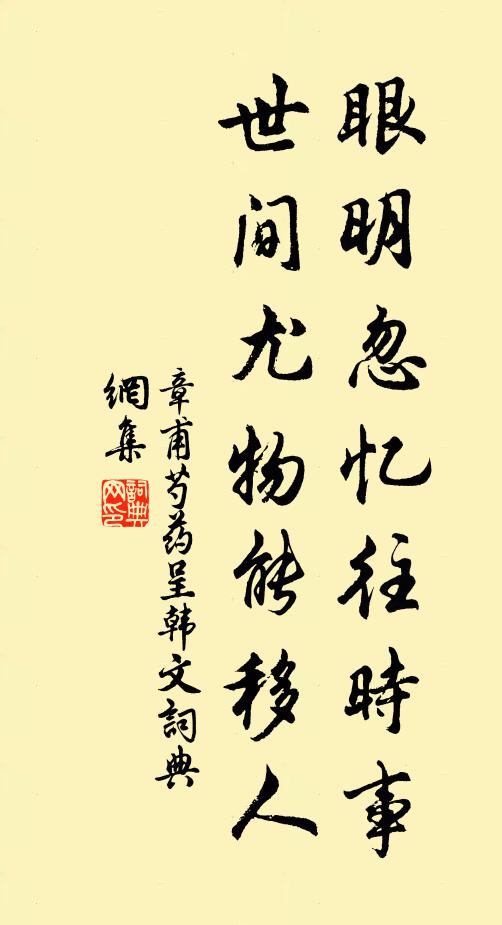 眼明忽忆往時事
世间尤物能移人
章甫芍药呈韩文詞典
網集
詞典
网印